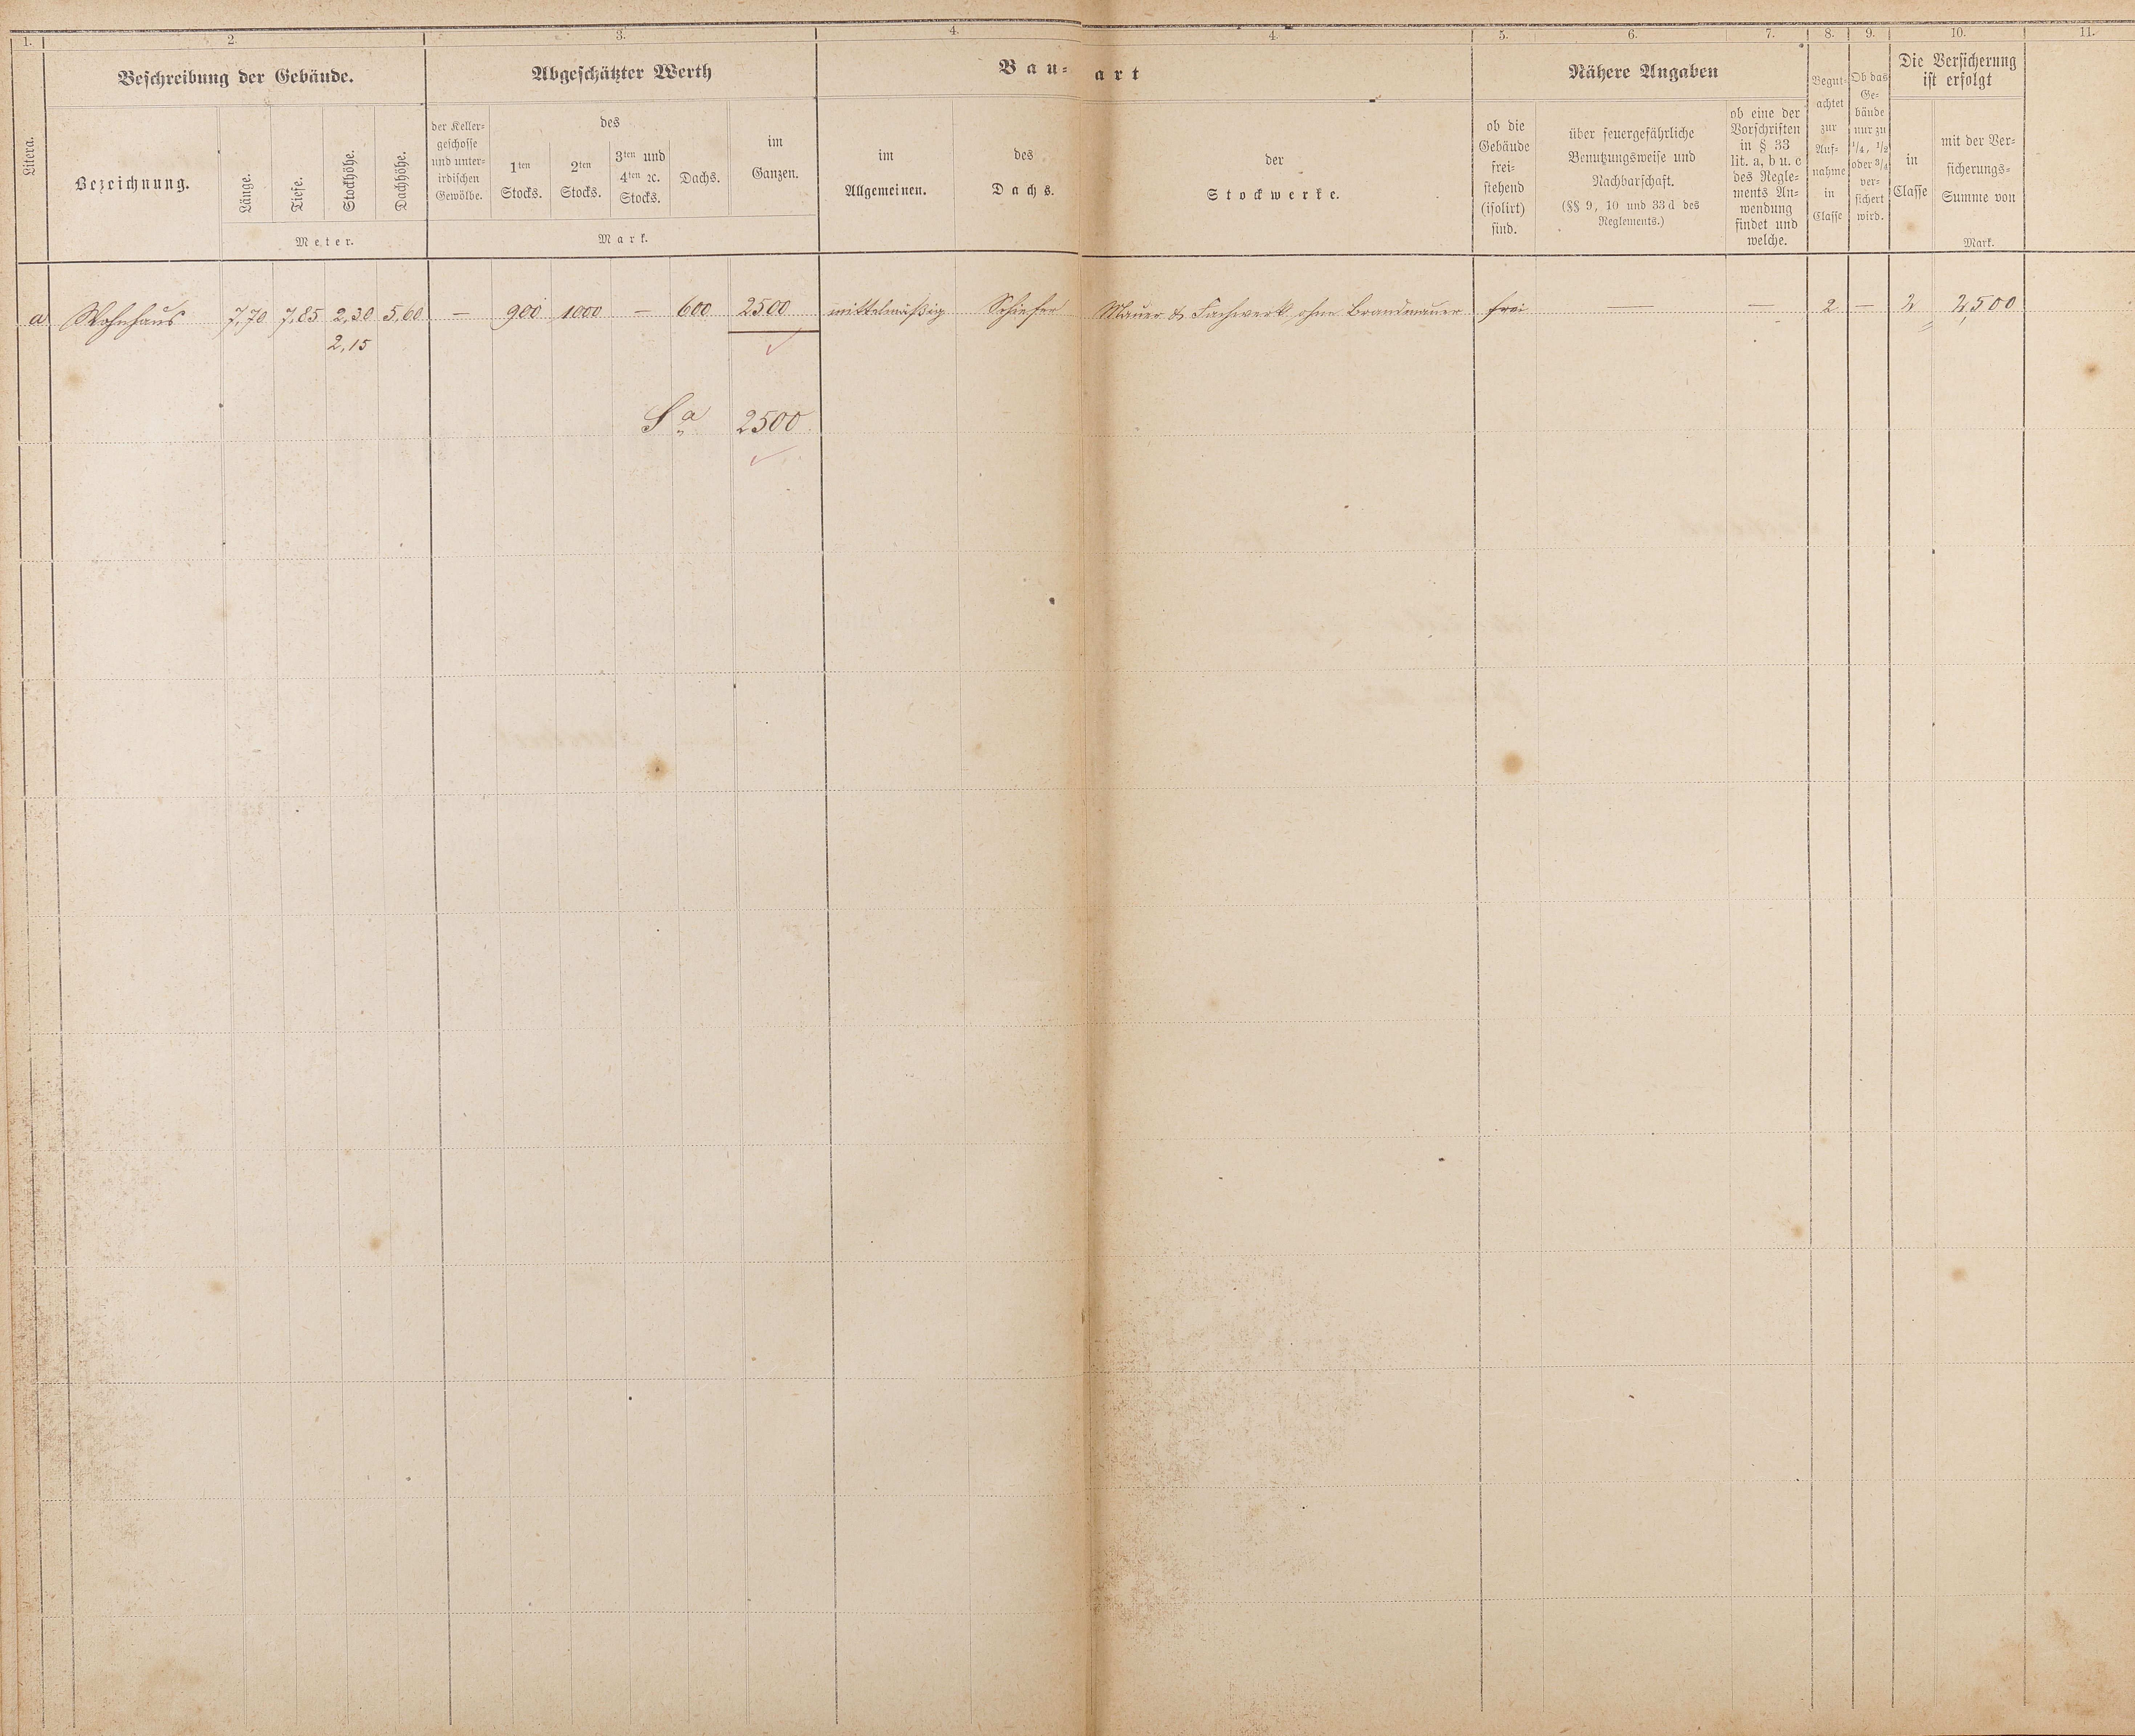 1. 2. 3. 4. 4. 5. 6. 7. 8. 9. 10. 11.
Litera.
Beschreibung der Gebäude.
Bezeichnung.
Länge.
Tiefe.
Stockhöhe.
Dachhöhe.
Meter.
Abgeschätzter Werth
der Keller-
geschosse
und unter-
irdischen
Gewölbe.
des
1ten
Stocks.
2ten
Stocks.
3ten und
4ten ꝛc.
Stocks.
Dachs.
im
Ganzen.
Mark.
Bau-art
im
Allgemeinen.
des
Dachs.
der
Stockwerke.
Nähere Angaben
ob die
Gebäude
frei-
stehend
(isolirt)
sind.
über feuergefährliche
Benutzungsweise und
Nachbarschaft.
(§§ 9, 10 und 33 d des
Reglements.)
ob eine der
Vorschriften
in § 33
lit. a, b u. c
des Regle-
ments An-
wendung
findet und
welche.
Begut-
achtet
zur
Auf-
nahme
in
Classe
Ob das
Ge-
bäude
nur zu
1/4, 1/2
oder 3/4
ver-
sichert
wird.
Die Versicherung
ist erfolgt
in
Classe
mit der Ver-
sicherungs-
Summe von
Mark.
a Wohnhaus 7,70 7,85 2,30 5,60 — 900 1000 — 600 2500 mittelmäßig Schiefer Mauer & Fachwerk, ohne Brandmauer frei — — 2 — 2 2,500
2,15
Sa 2500